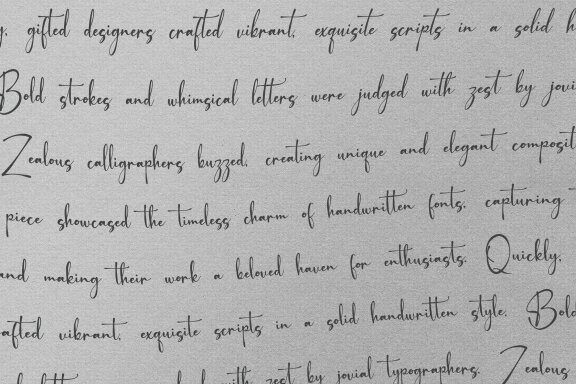 gifted designers crafted vibrant, exquisite scripts in a solid
Bold strokes and whimsical letters were judged with zest by
Zealous calligraphers buzzed, creating unique and elegant
piece showcased the timeless charm of handwritten fonts, capturing
and making their work a beloved haven for enthusiasts. Quickly,
vibrant, exquisite scripts in a solid handwritten style. Bold
with zest by jovial typographers. Zealous